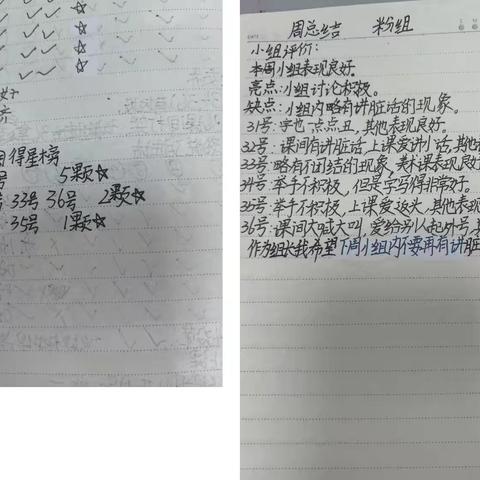 得星榜
号 5颗☆
33号 36号 2颗☆
35号 1颗☆
周总结 粉组
小组评价:
本周小组表现良好。
亮点:小组讨论积极。
缺点:小组内略有讲脏话的现象。
31号:字也一点点丑,其他表现良好。
32号:课间有讲脏话,上课爱讲小话,其他
33号:略有不团结的现象,美术课表现良好
34号:举手不积极,但是字写得非常好。
35号:举手不积极,上课爱返头,其他表现
36号:课间大喊大叫,爱给别人起外号,
作为组长我希望下周小组内不要再有讲脏